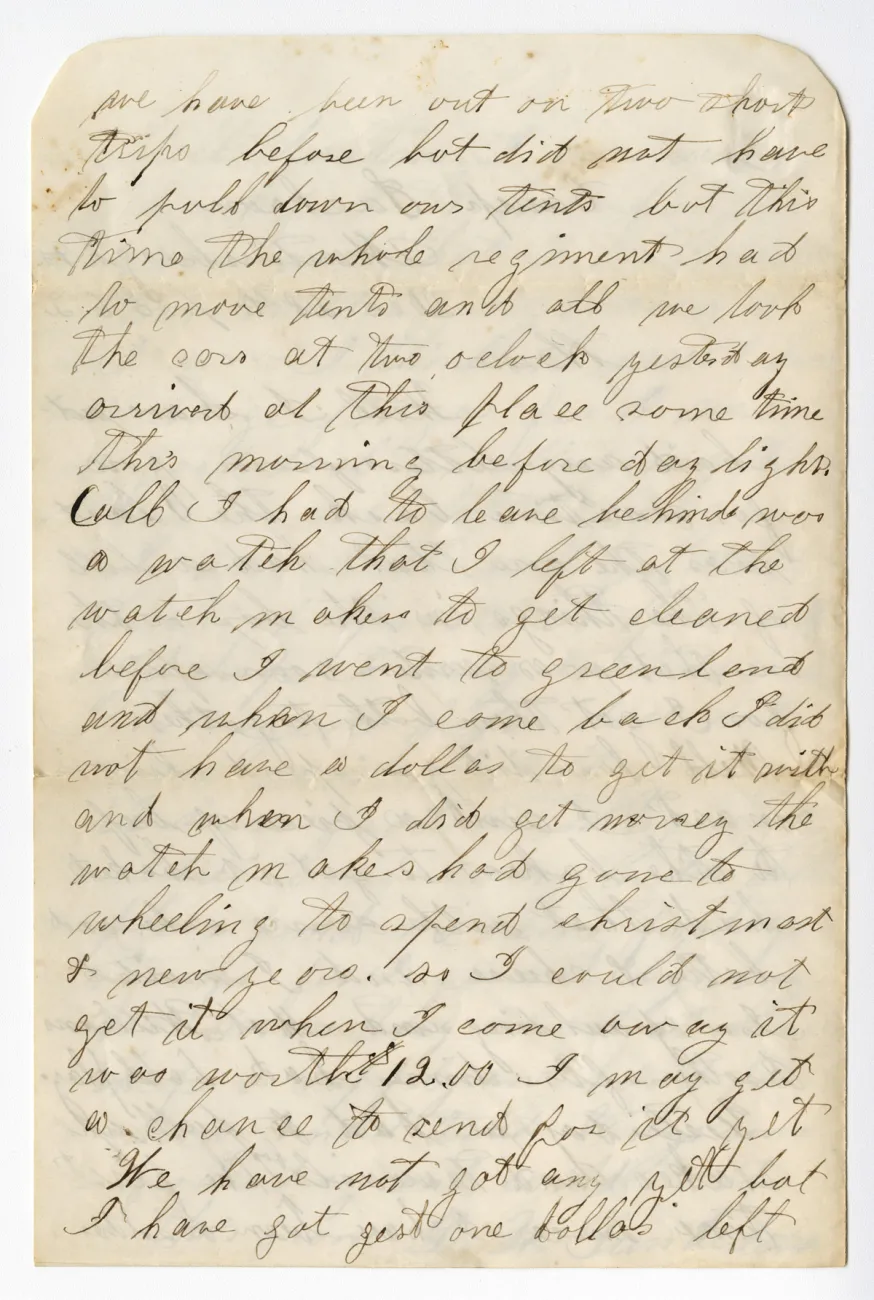 we have been out on two short
trips before but did not have
to pull down our tents but this
time the whole regiment had
to move tents and all we took
the cars at two oclock yesterday
arrived at this place some time
this morning before day light.
(all I had to leave behind was
a watch that I left at the
watch makers to get cleaned
before I went to greenland
and when I come back I did
not have a dollar to get it with
and when I did get money the
watch maker had gone to
wheeling to spend christmast
& new years. so I could not
get it when I come away it
was worth $12.00 I may get
a chance to send for it yet
We have not got any yet but
I have got gest one dollar left